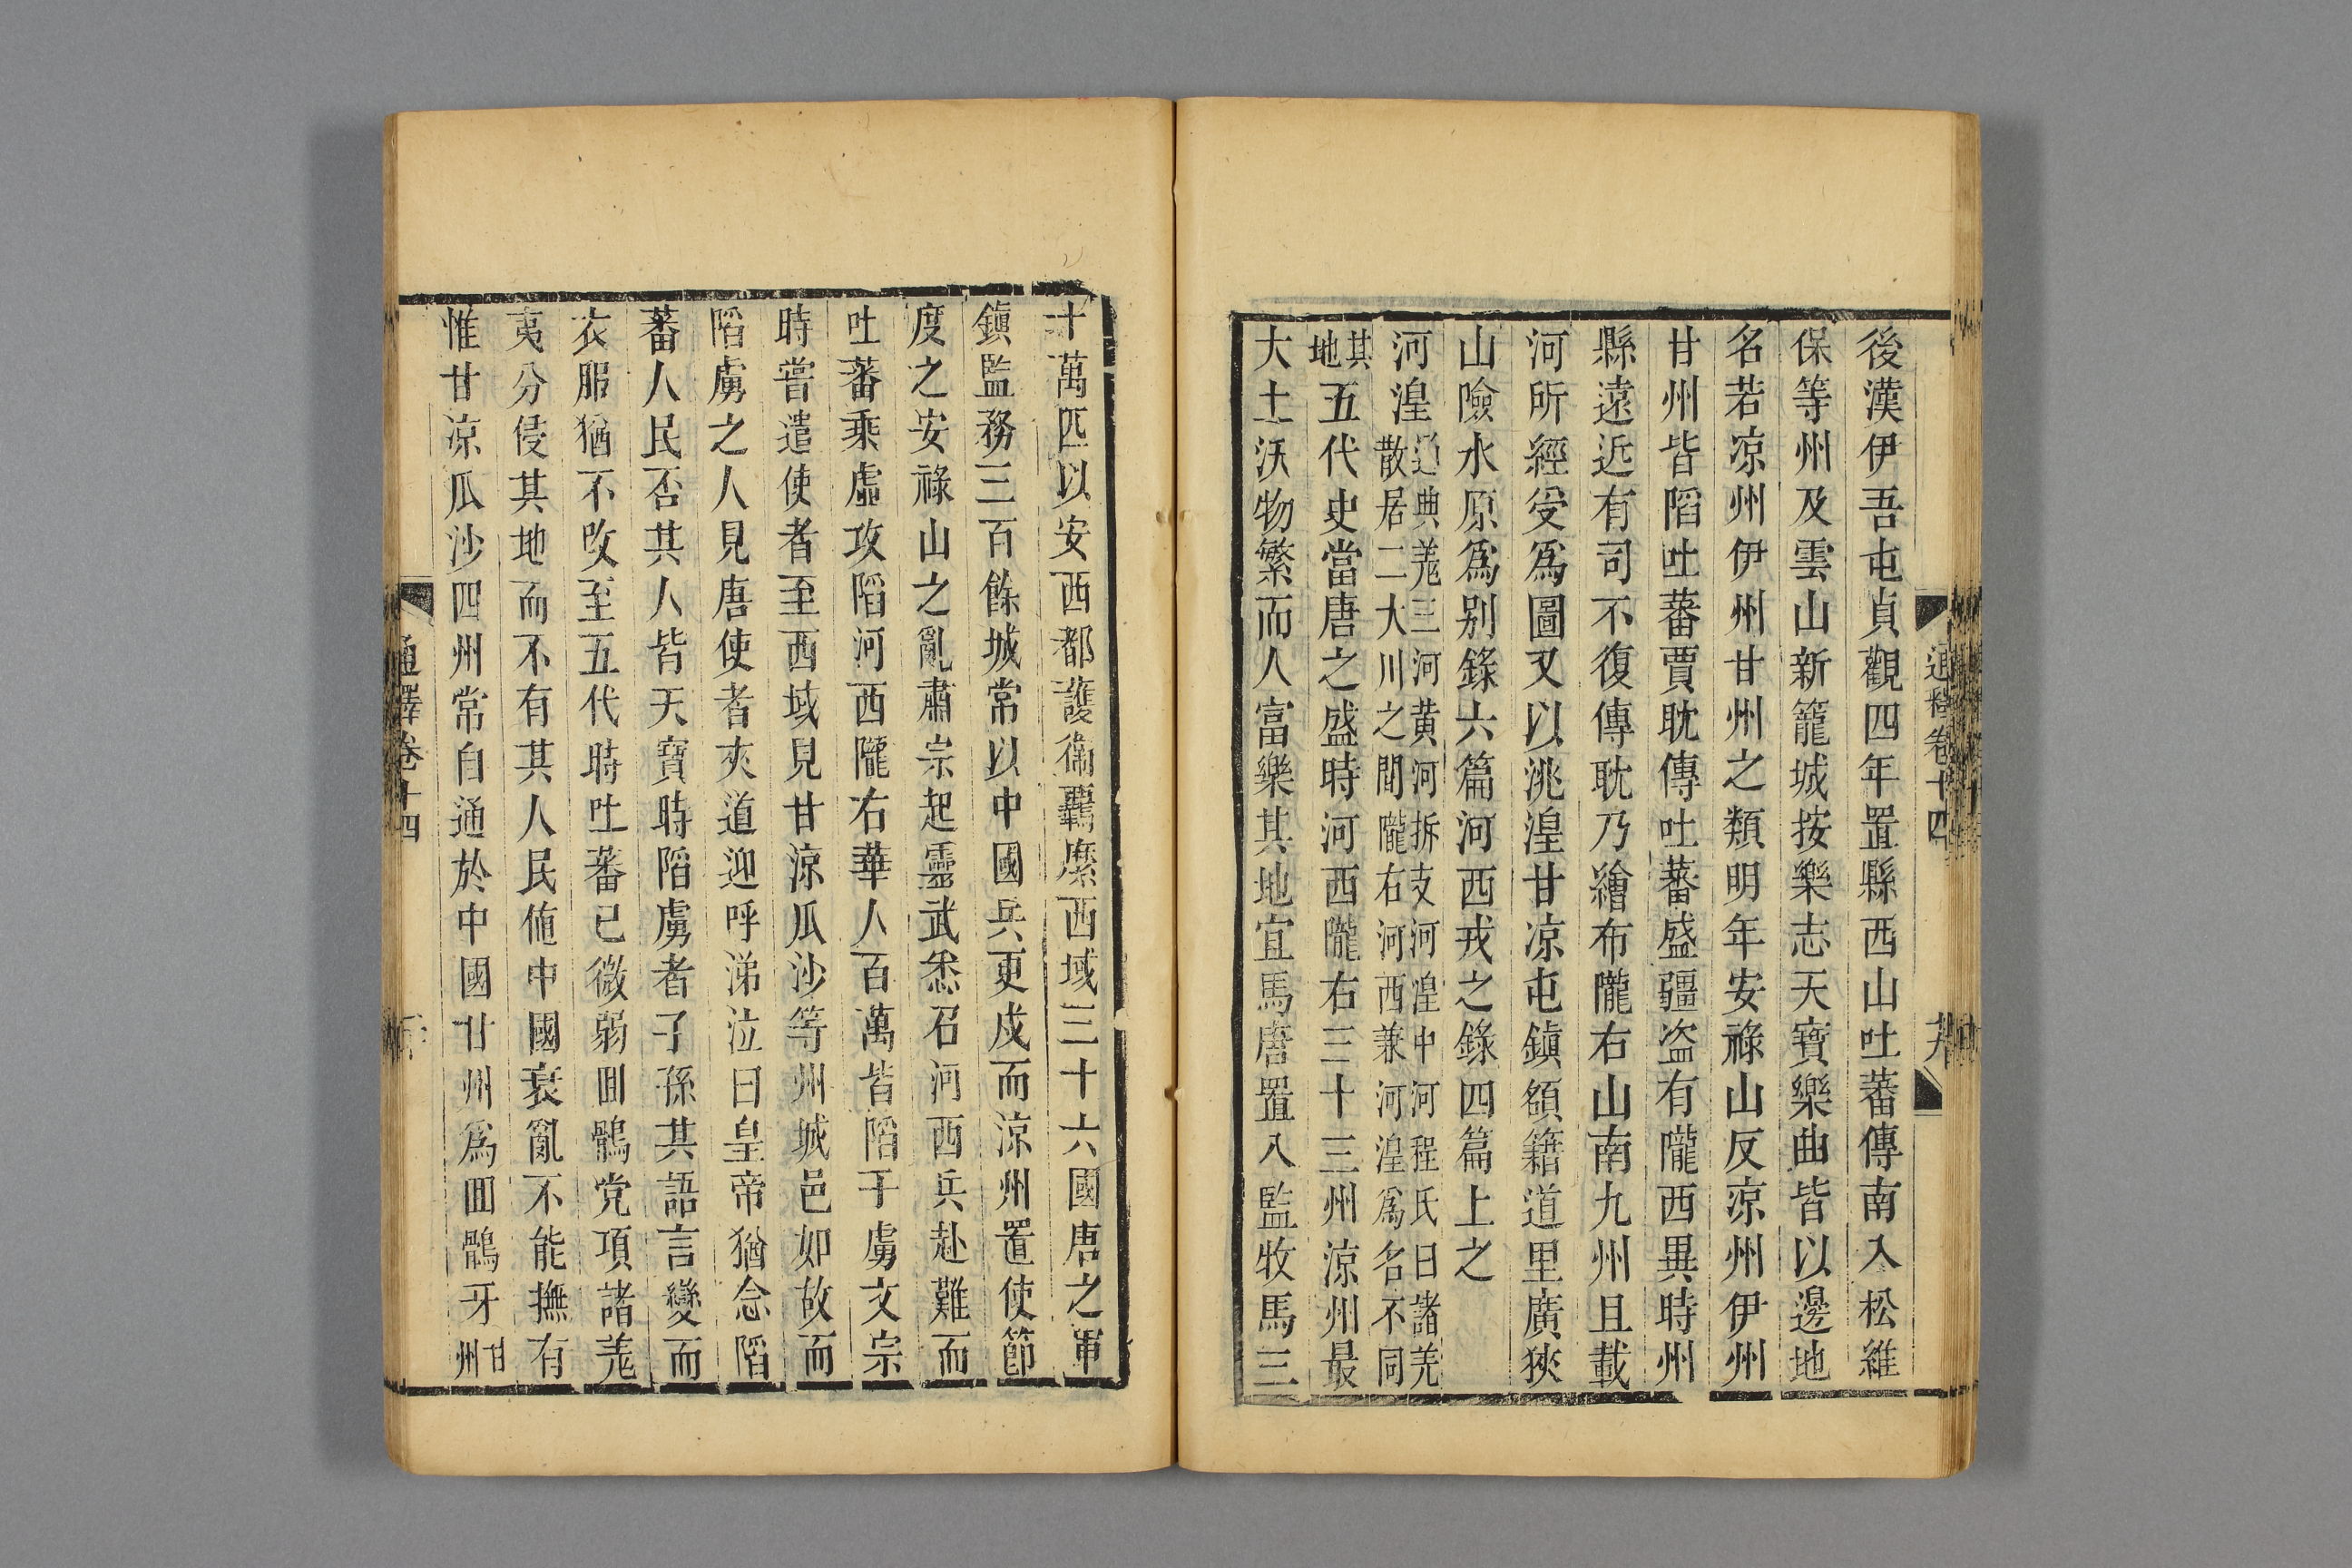 後漢伊吾屯貞觀四年置縣西山吐蕃傳南入松維
保等州及雲山新籠城按樂志天寶樂曲皆以邊地
名若凉州伊州甘州之類明年安祿山反凉州伊州
甘州皆陷吐蕃賈耽傳吐蕃盛疆盗有隴西異時州
縣遠近有司不復傳耽乃繪布隴右山南九州且載
河所經受爲圖又以洮湟甘凉屯鎮額籍道里廣狹
山險水原爲别錄六篇河西戎之錄四篇上之
河湟通典羗三河黄河拆支河湟中河程氏曰諸羌散居二大川之間隴右河西兼河湟爲名不同
其地五代史當唐之盛時河西隴右三十三州涼州最
大土沃物繁而人富樂其地宜馬唐置八監牧馬三
十萬匹以安西都護衞羈縻西域三十六國唐之軍
鎮監務三百餘城常以中國兵更戍而涼州置使節
度之安祿山之亂肅宗起靈武悉召河西兵赴難而
吐蕃乘虛攻陷河西隴右華人百萬皆陷于虜文宗
時嘗遣使者至西域見甘涼瓜沙等州城邑如故而
陷虜之人見唐使者夾道迎呼涕泣曰皇帝猶念陷
蕃人民否其人皆天寶時陷虜者子孫其語言變而
衣服猶不改至五代時吐蕃已微弱回鶻党項諸羗
夷分侵其地而不有其人民値中國衰亂不能撫有
惟甘凉瓜沙四州常自通於中國甘州爲回鶻牙甘州
通釋卷十四
通釋卷十四